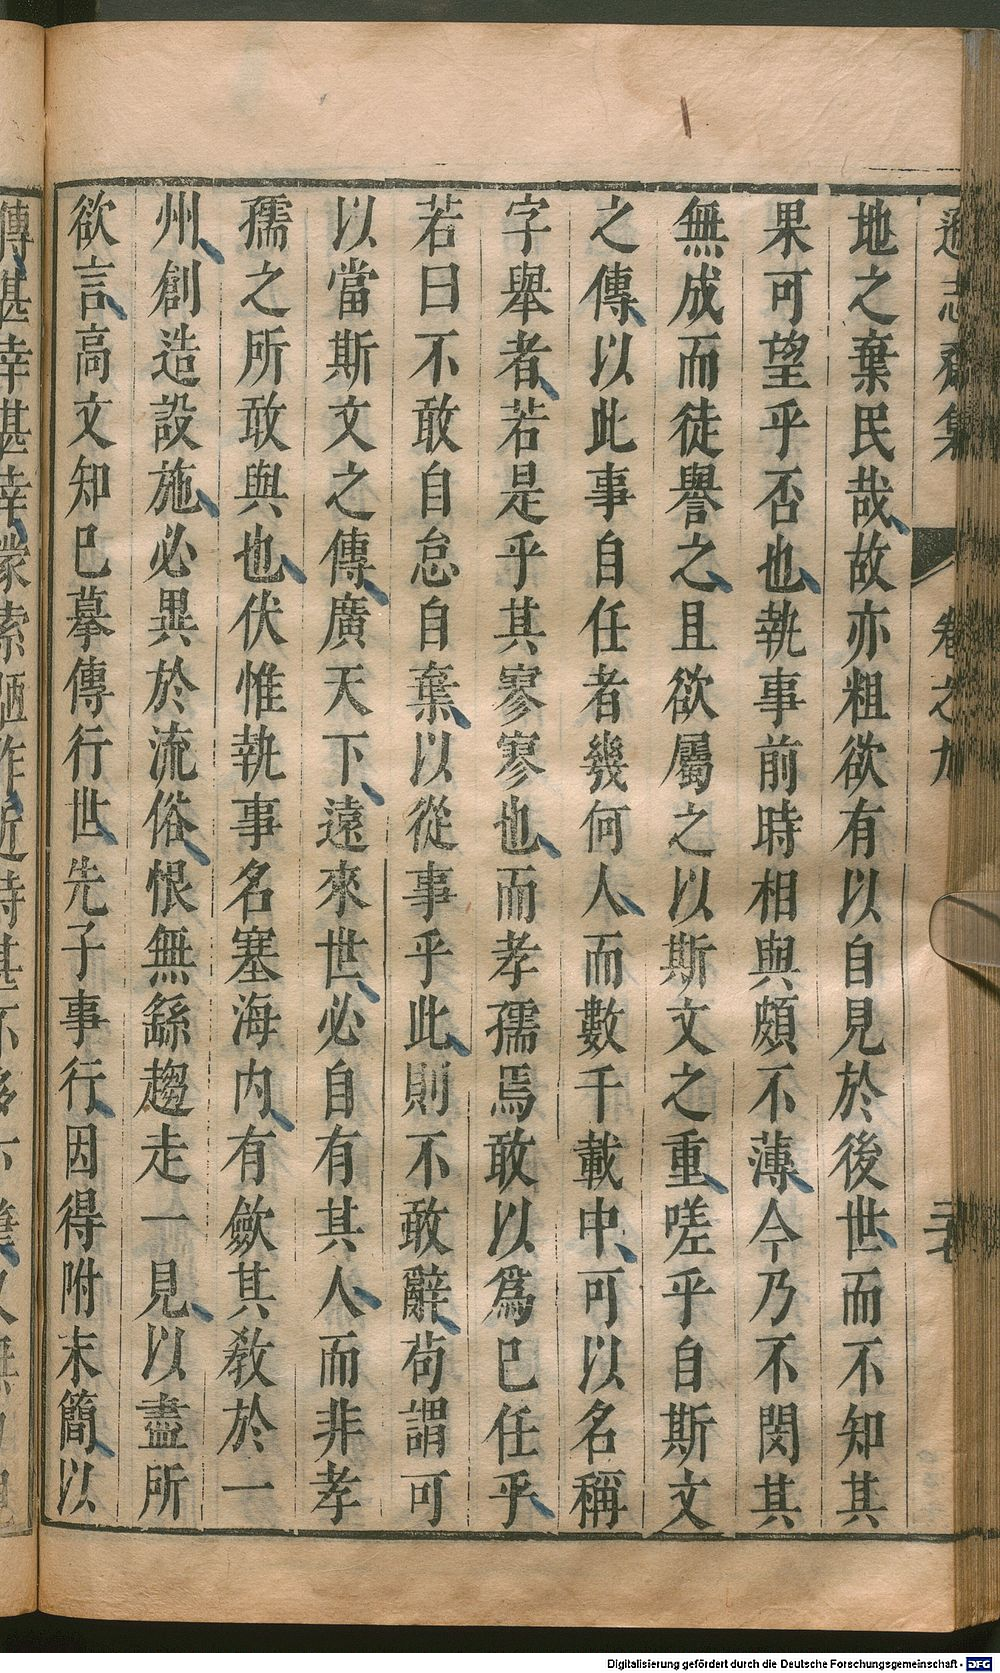 遜志齋集
卷之九
地之棄民哉故亦粗欲有以自見於後世而不知其
果可望乎否也執事前時相與頗不薄今乃不閔其
無成而徒譽之且欲屬之以斯文之重嗟乎自斯文
之傳以此事自任者幾何人而數千載中可以名稱
字舉者若是乎其寥寥也而孝孺焉敢以爲已任乎
若曰不敢自怠自棄以從事乎此則不敢辭苟謂可
以當斯文之傳廣天下遠來世必自有其人而非孝
孺之所敢與也伏惟執事名塞海内有歛其教於一
州創造設施必異於流俗恨無繇趨走一見以盡所
欲言高文知已摹傳行世先子事行因得附末簡以
傳甚幸甚幸
Digitalisierung gefördert durch die Deutsche Forschungsgemeinschaft - DFG